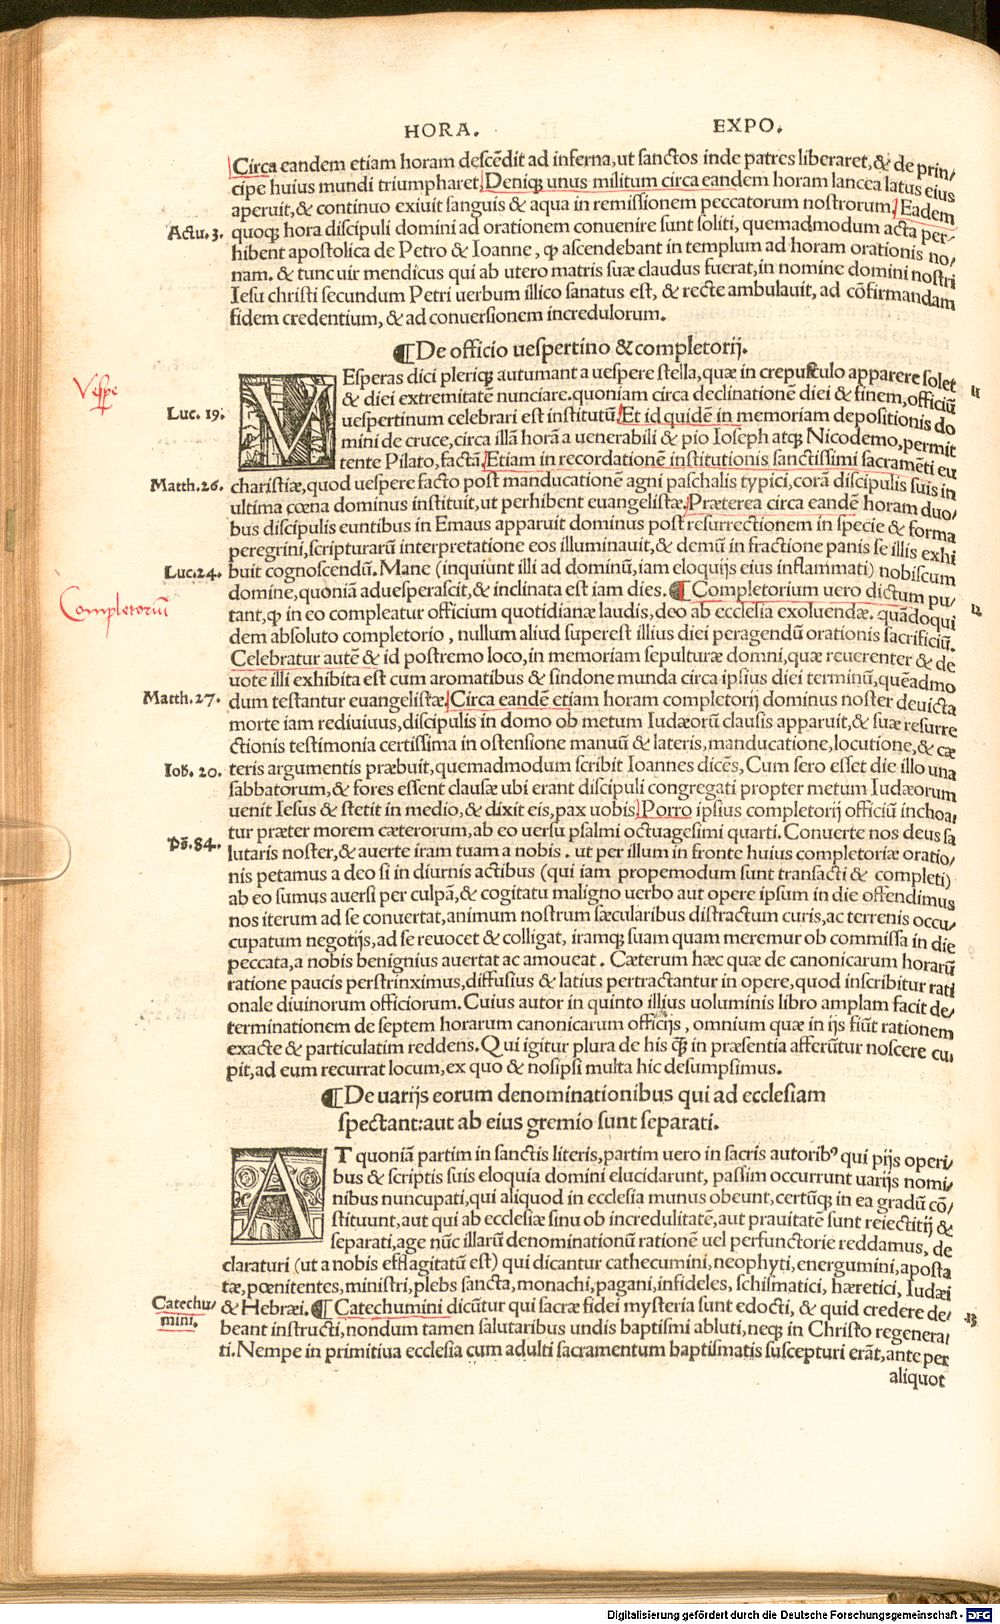 HORA. EXPO.
Circa eandem etiam horam descēdit ad inferna,ut sanctos inde patres liberaret,& de prin/
cipe huius mundi triumpharet. Deniqꝫ unus militum circa eandem horam lancea latus eius
aperuit,& continuo exiuit sanguis & aqua in remissionem peccatorum nostrorum. Eadem
Actu.3. quoqꝫ hora discipuli domini ad orationem conuenire sunt soliti, quemadmodum acta per/
hibent apostolica de Petro & Ioanne, ꝙ ascendebant in templum ad horam orationis no/
nam. & tunc uir mendicus qui ab utero matris suæ claudus fuerat,in nomine domini nostri
Iesu christi secundum Petri uerbum illico sanatus est, & recte ambulauit, ad cōfirmandam
fidem credentium, & ad conuersionem incredulorum.
¶De officio uespertino & completorij.
Vespe
VEsperas dici pleriqꝫ autumant a uespere stella,quæ in crepusculo apparere solet 11
& diei extremitatē nunciare.quoniam circa declinationē diei & finem,officiū
Luc. 19. uespertinum celebrari est institutū. Et id quidē in memoriam depositionis do
mini de cruce,circa illā horā a uenerabili & pio Ioseph atqꝫ Nicodemo,permit
tente Pilato,factā. Etiam in recordationē institutionis sanctissimi sacramēti eu
Matth.26. charistiæ,quod uespere facto post manducationē agni paschalis typici,corā discipulis suis in
ultima cœna dominus instituit,ut perhibent euangelistæ. Præterea circa eandē horam duo/
bus discipulis euntibus in Emaus apparuit dominus post resurrectionem in specie & forma
peregrini,scripturarū interpretatione eos illuminauit,& demū in fractione panis se illis exhi
Luc.24. buit cognoscendū. Mane (inquiunt illi ad dominū,iam eloquijs eius inflammati) nobiscum
domine,quoniā aduesperascit,& inclinata est iam dies. ¶ Completorium uero dictum pu/
Completoriū
tant,ꝙ in eo compleatur officium quotidianæ laudis,deo ab ecclesia exoluendæ. quādoqui 12
dem absoluto completorio, nullum aliud superest illius diei peragendū orationis sacrificiū.
Celebratur autē & id postremo loco,in memoriam sepulturæ domni,quæ reuerenter & de
uote illi exhibita est cum aromatibus & sindone munda circa ipsius diei terminū,quēadmo
Matth.27. dum testantur euangelistæ. Circa eandē etiam horam completorij dominus noster deuicta
morte iam rediuiuus,discipulis in domo ob metum Iudæorū clausis apparuit,& suæ resurre
ctionis testimonia certissima in ostensione manuū & lateris,manducatione,locutione,& cæ
Ioh. 20. teris argumentis præbuit,quemadmodum scribit Ioannes dicēs,Cum sero esset die illo una
sabbatorum,& fores essent clausæ ubi erant discipuli congregati propter metum Iudæorum
uenit Iesus & stetit in medio,& dixit eis,pax uobis. Porro ipsius completorij officiū inchoa/
tur præter morem cæterorum,ab eo uersu psalmi octuagesimi quarti. Conuerte nos deus sa
Ps̄.84. lutaris noster,& auerte iram tuam a nobis. ut per illum in fronte huius completoriæ oratio/
nis petamus a deo si in diurnis actibus (qui iam propemodum sunt transacti & completi)
ab eo sumus auersi per culpā,& cogitatu maligno uerbo aut opere ipsum in die offendimus
nos iterum ad se conuertat,animum nostrum sæcularibus distractum curis,ac terrenis occu/
cupatum negotijs,ad se reuocet & colligat, iramqꝫ suam quam meremur ob commissa in die
peccata,a nobis benignius auertat ac amoueat. Cæterum hæc quæ de canonicarum horarū
ratione paucis perstrinximus,diffusius & latius pertractantur in opere,quod inscribitur rati
onale diuinorum officiorum. Cuius autor in quinto illius uoluminis libro amplam facit de/
terminationem de septem horarum canonicarum officijs, omnium quæ in ijs fiūt rationem
exacte & particulatim reddens. Qui igitur plura de his q̄ꝫ in præsentia afferūtur noscere cu/
pit,ad eum recurrat locum,ex quo & nosipsi multa hic desumpsimus.
¶De uarijs eorum denominationibus qui ad ecclesiam
spectant:aut ab eius gremio sunt separati.
AT quoniā partim in sanctis literis,partim uero in sacris autoribꝰ qui pijs operi/
bus & scriptis suis eloquia domini elucidarunt, passim occurrunt uarijs nomi/
nibus nuncupati,qui aliquod in ecclesia munus obeunt,certūqꝫ in ea gradū cō/
stituunt,aut qui ab ecclesiæ sinu ob incredulitatē,aut prauitatē sunt reiectitij &
separati,age nūc illarū denominationū rationē uel perfunctorie reddamus, de
claraturi (ut a nobis efflagitatū est) qui dicantur cathecumini,neophyti,energumini,aposta
tæ,pœnitentes,ministri,plebs sancta,monachi,pagani,infideles,schismatici, hæretici, Iudæi
Catechu/ & Hebræi. ¶ Catechumini dicūtur qui sacræ fidei mysteria sunt edocti, & quid credere de/ 13
mini. beant instructi,nondum tamen salutaribus undis baptismi abluti,neqꝫ in Christo regenera/
ti. Nempe in primitiua ecclesia cum adulti sacramentum baptismatis suscepturi erāt,ante per
aliquot
Digitalisierung gefördert durch die Deutsche Forschungsgemeinschaft - DFG